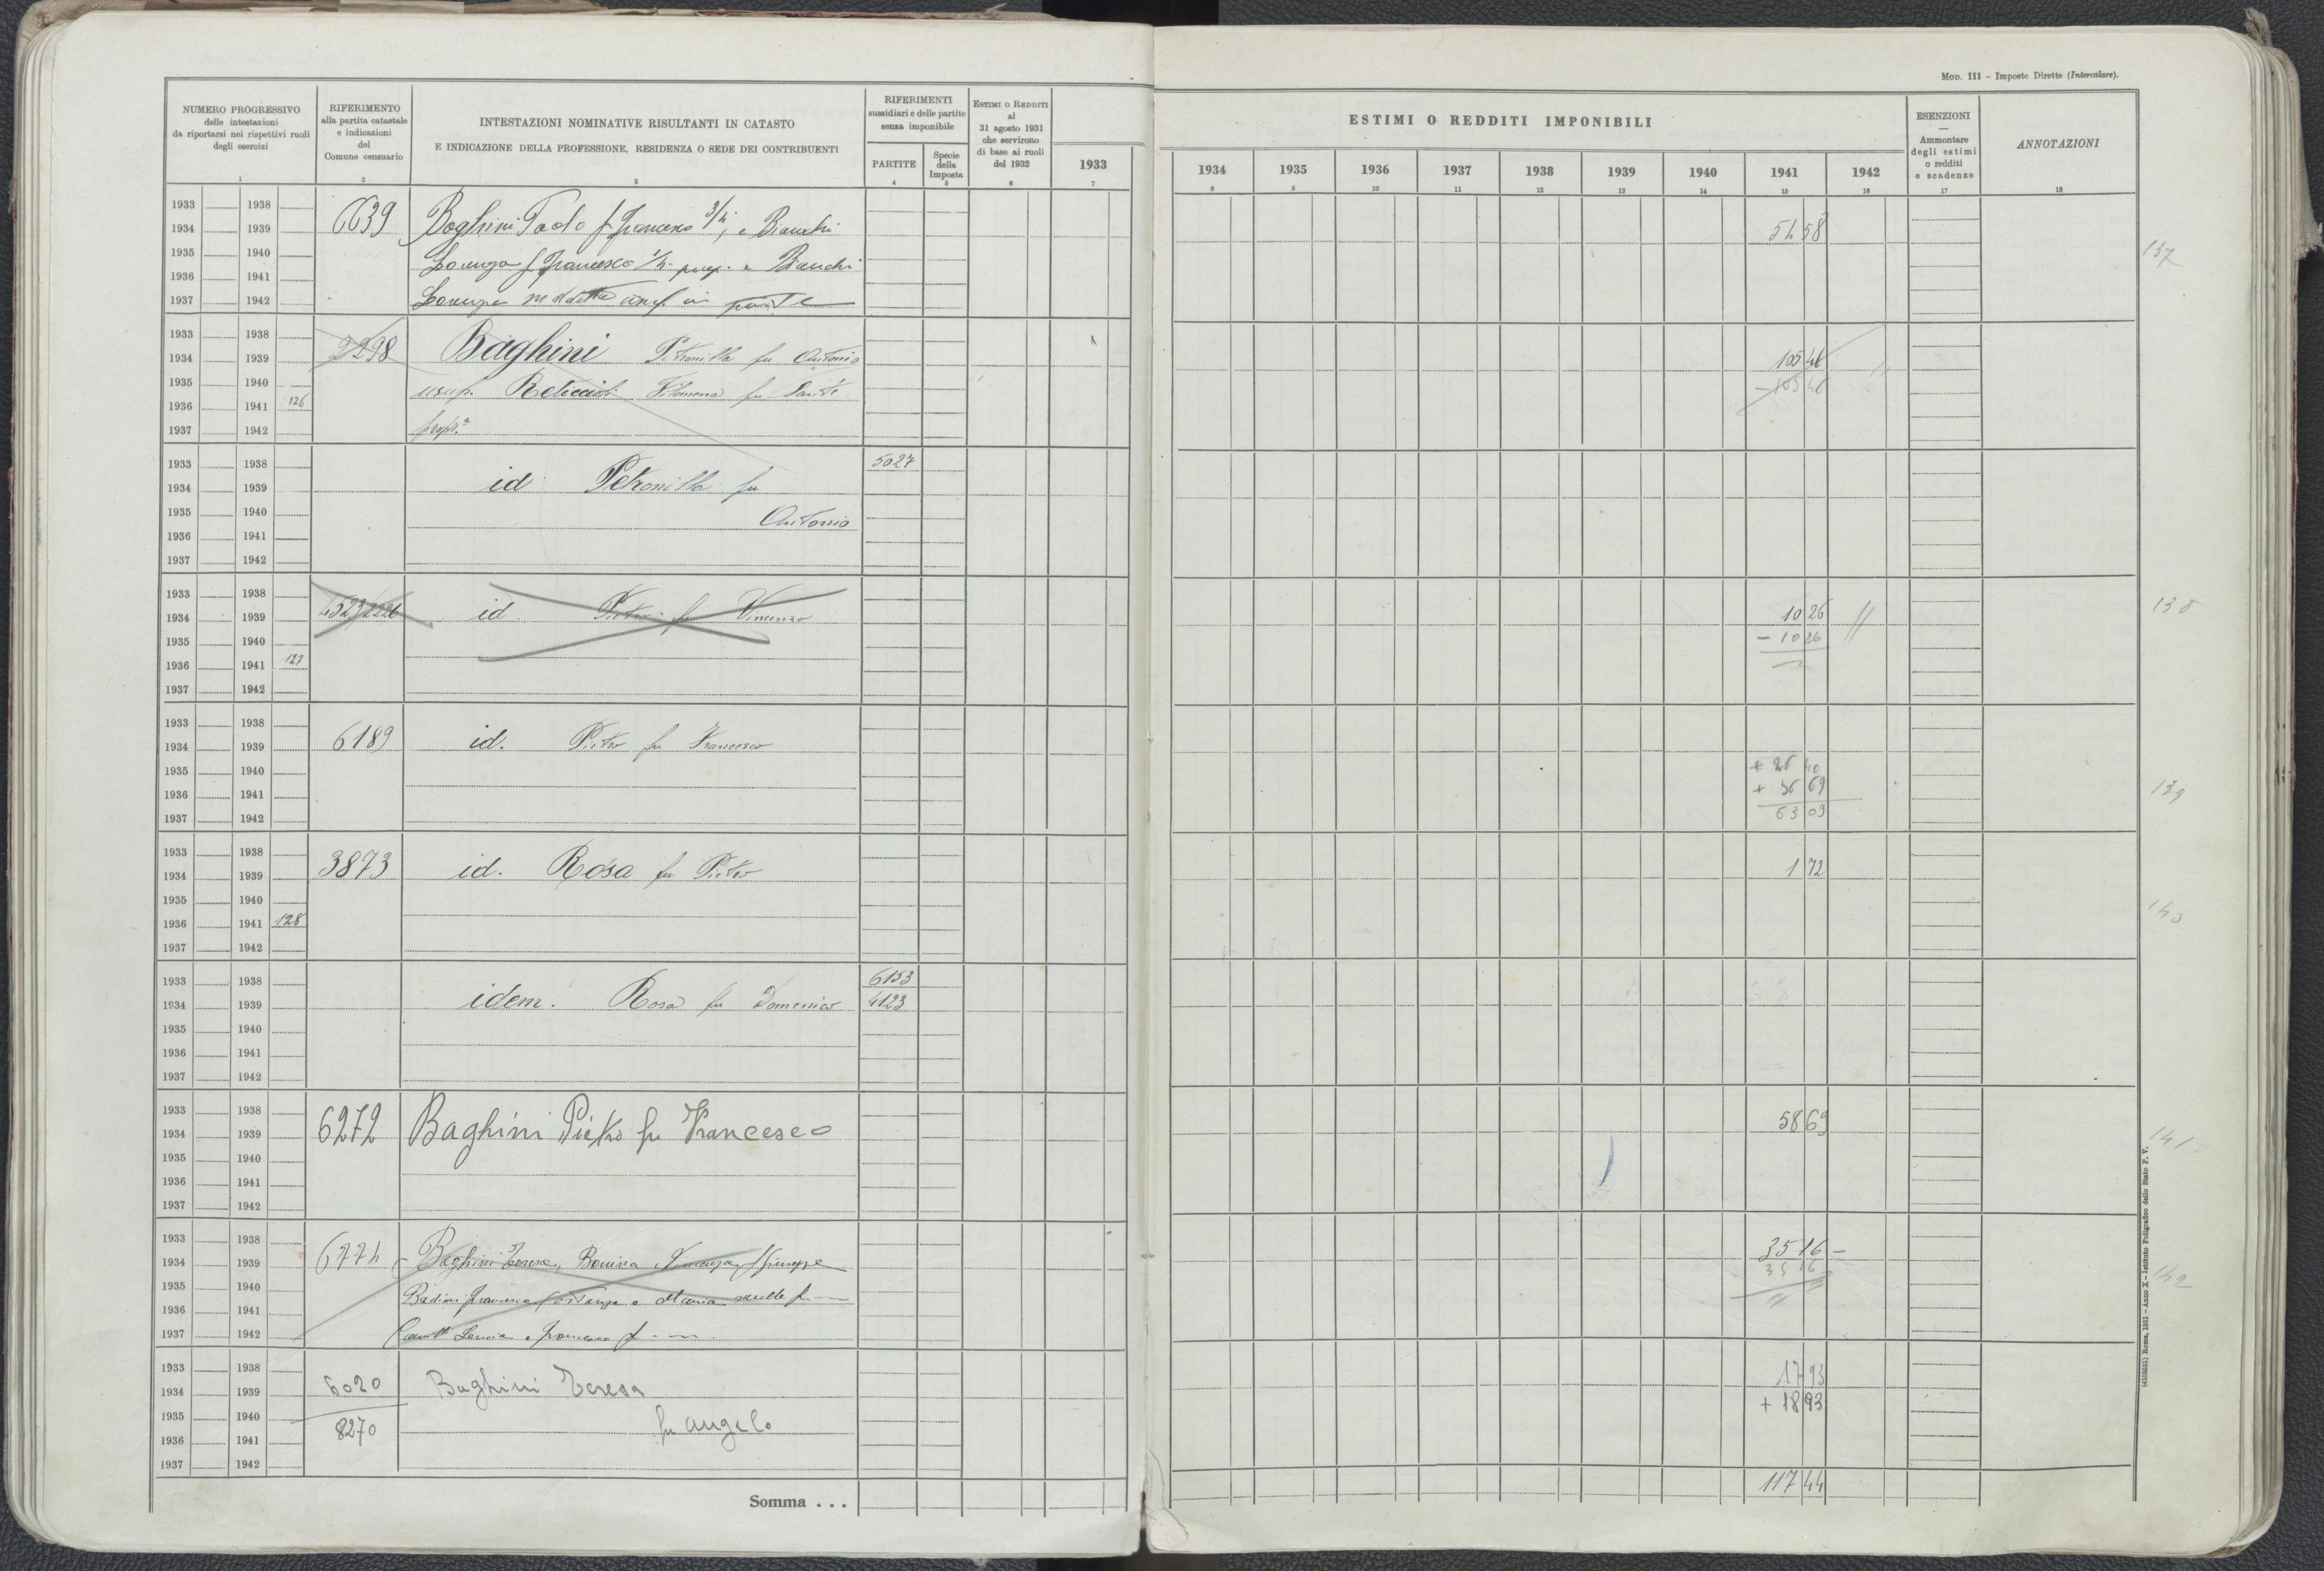 MOD. 111 – Imposte Dirette (Intercalare).
NUMERO PROGRESSIVO
delle intestazioni
da riportarsi nei rispettivi ruoli
degli esercizi
1
RIFERIMENTO
alla partita catastale
e indicazioni
del
Comune censuario
2
INTESTAZIONI NOMINATIVE RISULTANTI IN CATASTO
E INDICAZIONE DELLA PROFESSIONE, RESIDENZA O SEDE DEI CONTRIBUENTI
3
RIFERIMENTI
sussidiari e delle partite
senza imponibile
PARTITE
4
Specie
della
Imposta
5
ESTIMI O REDDITI
al
31 agosto 1931
che servirono
di base ai ruoli
del 1932
6
1933
7
ESTIMI O REDDITI IMPONIBILI
1934 1935 1936 1937 1938 1939 1940 1941 1942
8 9 10 11 12 13 14 15 16
ESENZIONI
—
Ammontare
degli estimi
o redditi
e scadenze
17
ANNOTAZIONI
18
1933 1938
1934 1939 6639 Baghini Paolo f Francesco 3/4; e Bianchi 54 58
1935 1940 Lorenzo f Francesco 1/4 prop. e Bianchi 137
1936 1941
1937 1942 Lorenzo in parte
1933 1938
1934 1939 2298 Baghini Petronilla fu Antonio 105 46
1935 1940 usuf. Filomena fu Sante – 105 46
1936 1941 126
1937 1942 prop.a
1933 1938 5027
1934 1939 id Petronilla fu
1935 1940 Antonio
1936 1941
1937 1942
1933 1938
1934 1939 4523/2226 id. Pietro fu Vincenzo 10 26 138
1935 1940 – 10 26
1936 1941 127
1937 1942
1933 1938
1934 1939 6189 id. Pietro fu Francesco
1935 1940 + 26 40
1936 1941 + 36 69 139
1937 1942 63 09
1933 1938
1934 1939 3873 id. Rosa fu Pietro 1 72
1935 1940
1936 1941 128 140
1937 1942
1933 1938 6153
1934 1939 idem. Rosa fu Domenico 4123
1935 1940
1936 1941
1937 1942
1933 1938
1934 1939 6272 Baghini Pietro fu Francesco 58 69 141
1935 1940
1936 1941
1937 1942
1933 1938
1934 1939 6774 Baghini Teresa, Bonina e Vincenza f Giuseppe 35 16 –
1935 1940 35 16 142
1936 1941 Badini Francesco Costanza e Maria
1937 1942 e Francesco f
1933 1938 17 93
1934 1939 6020 Baghini Teresa + 18 93
1935 1940 8270 fu Angelo
1936 1941
1937 1942
Somma . . . 117 44
(4108631) Roma, 1931 – Anno X – Istituto Poligrafico dello Stato P. V.